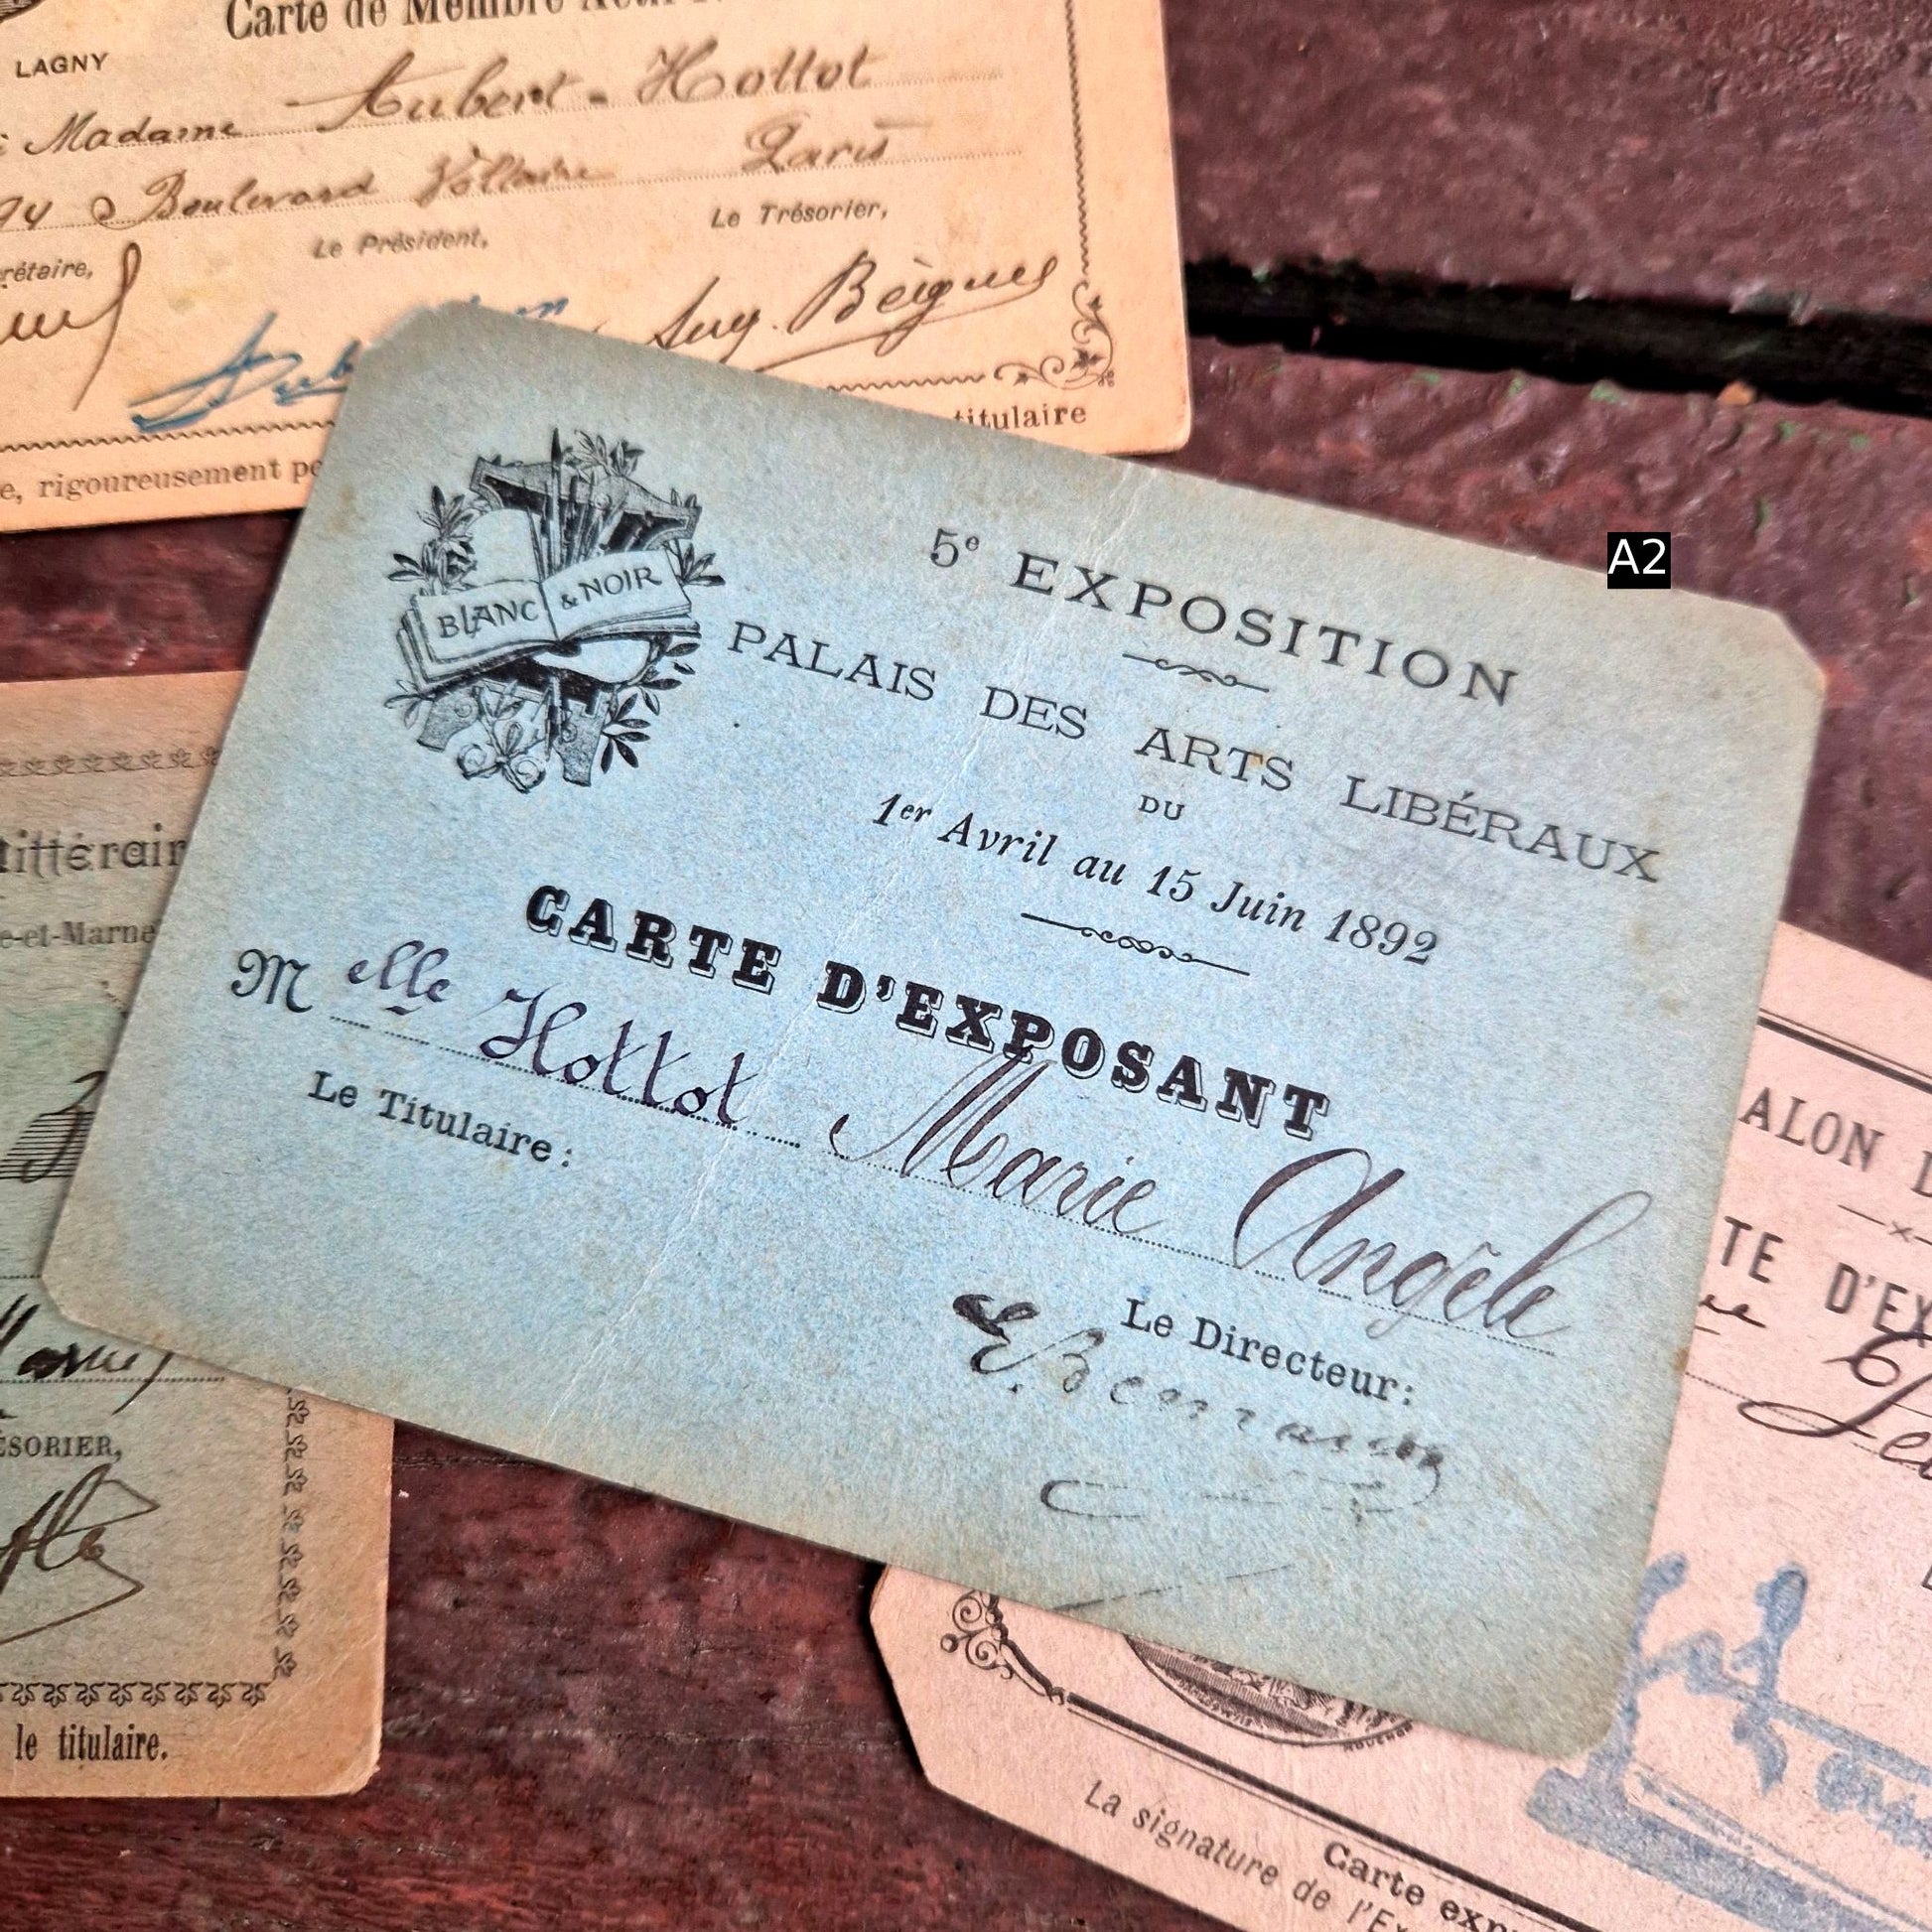 Carte de Membre
LAGNY
Madame Aubert-Hottot
94 Boulevard Voltaire Paris
Le Président,
Le Trésorier,
rétaire,
Aug. Bègues
titulaire
e, rigoureusement pe
A2
BLANC & NOIR
5e EXPOSITION
PALAIS DES ARTS LIBÉRAUX
DU
1er Avril au 15 Juin 1892
CARTE D'EXPOSANT
Melle Hottot Marie Angèle
Le Titulaire:
Le Directeur:
E. Bernard
littérair
e-et-Marne
ÉSORIER,
le titulaire.
ALON D
TE D'EX
Carte exp
La signature de l'Ex